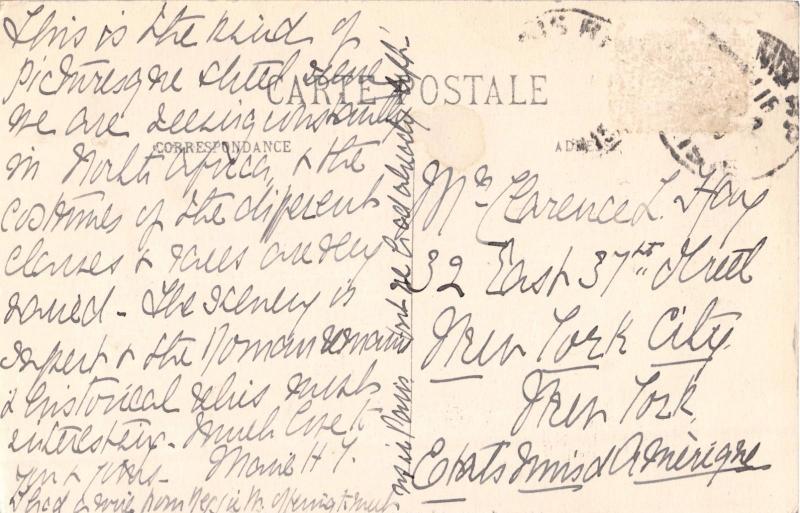 This is the kind of
picturesque street scene
we are seeing constantly
in North Africa, & the
costumes of the different
classes & races are very
varied - The scenery is
superb & the Roman remains
& historical relics most
interesting - Much love to
you & yours - Marie H Y.
I had a wire from
me in Paris
CARTE POSTALE
CORRESPONDANCE
Mr. Clarence L. Hay
32 East 37th Street
New York City.
New York,
Etats Unis d'Amérique